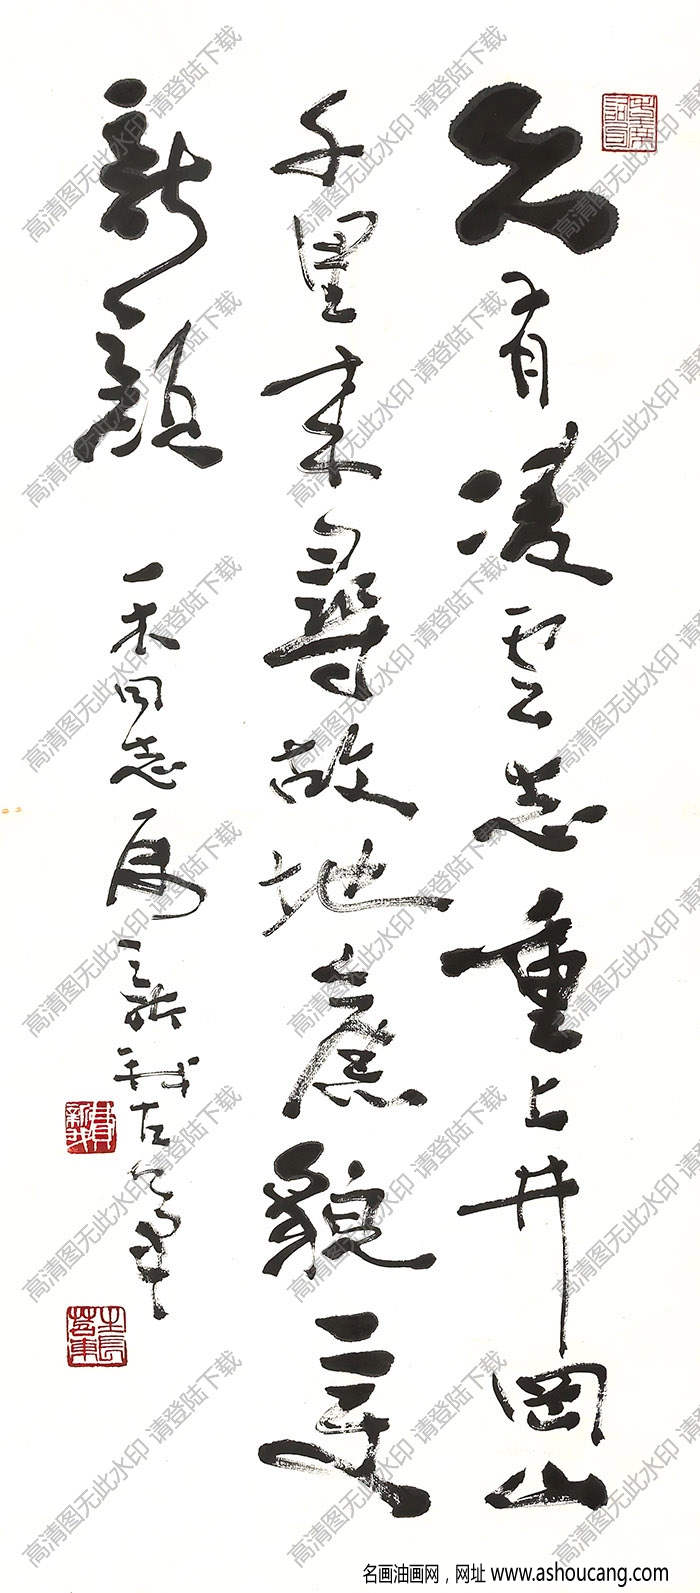 久有凌雲志重上井岡山
千里来尋故地舊貌变
新顔
一禾同志属新我左笔
費新我
名画油画网，网址 www.ashoucang.com
高清图无此水印 请登陆下载